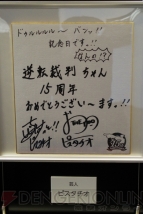 ドゥルルルル〜 バンッ!!
記念日です。!!
なんの!?
逆転裁判ちゃん
15周年
おめでとうございま〜す。!!
芸人
ピスタチオ
DENGEKIONLINE